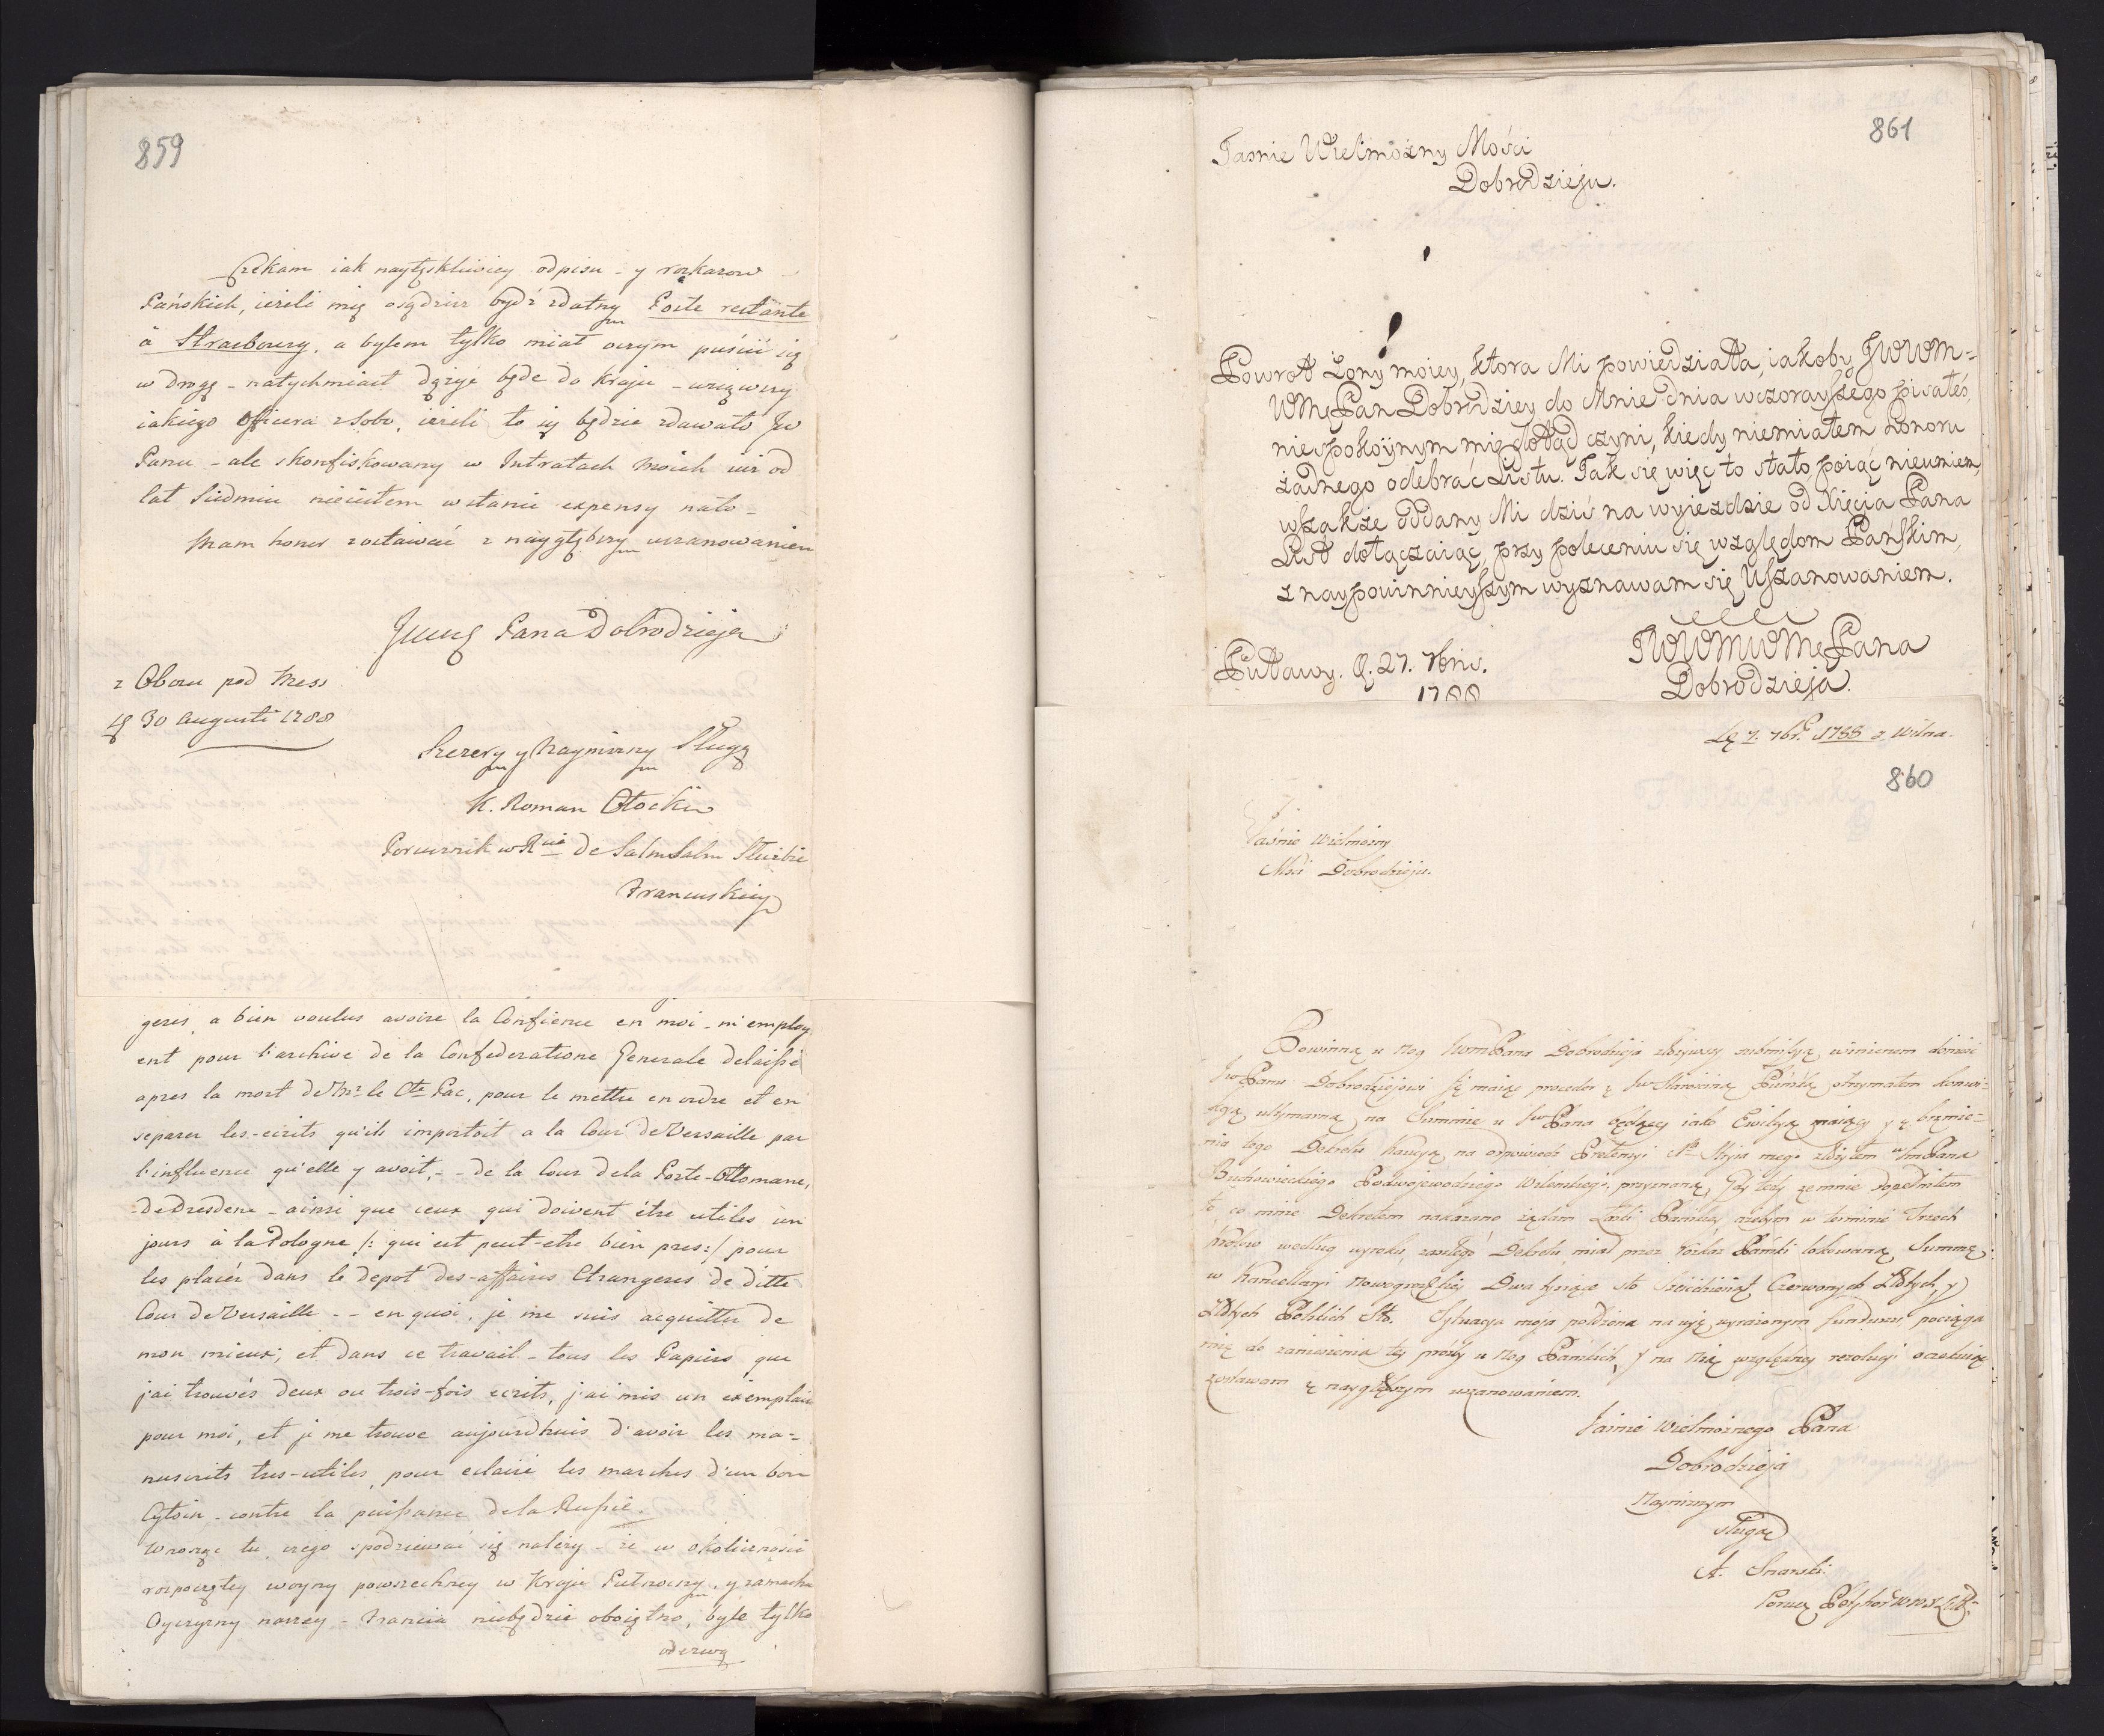 859
Czekam iak naytęskliwiey odpisu - y rozkazow
Pańskich, ieżeli mię osądzisz bydź zdatny Poste restante
à Strasbourg. a bylem tylko miał oczym puścić się
w drogę - natychmiast dążyć będe do kraju - wziąwszy
iakiego officera z sobo, ieżeli to się będzie zdawało Jw
Panu - ale skonfiskowany w Intratach moich iuż od
lat siedmiu nieiestem wstanie expensy nato -
Mam honor zostawać z naygłębszy uszanowaniem
Pana Dobrodzieja
z Obozu pod Mess
30 Augusti 1788
Szczery y Nayniższy Sługą
K. Roman
Porucznik w de Salm Salm Służbie
Francuskiey
geres, a bien voulus avoire la Confience en moi - m'employ
ent pour l'archive de la Confederatione Generale delaissé
apres la mort de Mr le Cte Pac, pour le mettre en ordre et en
separer les-ecrits qu'ils importoit a la Cour de Versaille par
l'influence qu'elle y avoit, - - de la Cour dela Porte-Ottomane,
- de Dresdene - ainsi que ceux qui doivent être utiles un
jours à la Pologne /: qui est peut-etre bien pres :/ pour
les placér dans le depot des-affaires Etrangeres de ditte
Cour de Versaille - - en quoi, je me suis acquitter de
mon mieux; et dans ce travail - tous les Papiers que
j'ai trouvés deux ou trois-fois ecrits, j'ai mis un exemplair
pour moi, et je me trouve aujourdhuis d'avoir les ma=
nuscrits tres-utiles, pour eclairé les marches d'un bon
Cytoin - contre la puissance dela Russie.
Wnosząc tu, czego spodziewać się należy - że w okoliczności
rozpoczętey woyny powszechney w Kraju Pułnocny, y zamachu
Oyczyzny naszey - Francia niebędzie oboiętno, byle tylko
odezwą
861
Jasnie Wielmożny Mości
Dobrodzieju.
Powrot Żony moiey, ktora Mi powiedziała, iakoby JWWM=
WMę Pan Dobrodziey do Mnie dnia wczorayszego pisałeś,
niespokoynym mię dotąd czyni, kiedy niemiałem honoru
żadnego odebrać Listu. Jak się więc to stało poiąć nieumiem,
wszakże oddany Mi dziś na wyieździe od Xięcia Pana
List dołączaiąc, przy poleceniu się względom Pańskim,
z naypowinnieyszym wyznawam się Uszanowaniem.
JWWMWMę Pana
Dobrodzieja.
Puławy. d. 27. 7bris.
1788
7. 7br. 1788 z Wilna.
860
Jaśnie Wielmożny
Mści Dobrodzieju.
Powinną u Nog Pana Dobrodzieja złożywszy submissyą, winienem donieść
Jw Panu Dobrodziejowi iż maiąc proceder z Jw Starościną Puńską otrzymałem
na Summie u Jw Pana będącey iako Ewikcyą maiącey y z brzmie=
nia tego Dekretu kaucyą na odpowiedź Pretensyi Stryia mego złożyłem w Pana
Buchowieckiego Podwojewodziego Wilenskiego, przyznaną, Gdy tedy zemnie dopełniłem
to, co mnie Dekretem nakazano żądam Łaski Pańskiey ażebym w terminie Trzech
Krolow według wyroku zaszłego Dekretu miał przez rozkaz Pański lokowaną Summę
w Kancellaryi Nowogrodzkiey Dwa tysiące sto Czerwonych Złotych, y
Złotych Polskich Sto. Sytuacya moja położona na wyż wyrażonym funduszu pociąga
mię do zaniesienia tey prośby u Nog Pańskich, y na nię względney rezolucyi oczekuiąc
zostawam z naygłębszym uszanowaniem.
Jaśnie Wielmożnego Pana
Dobrodzieja
Nayniższym
Sługą
A. Snarski
Porucz